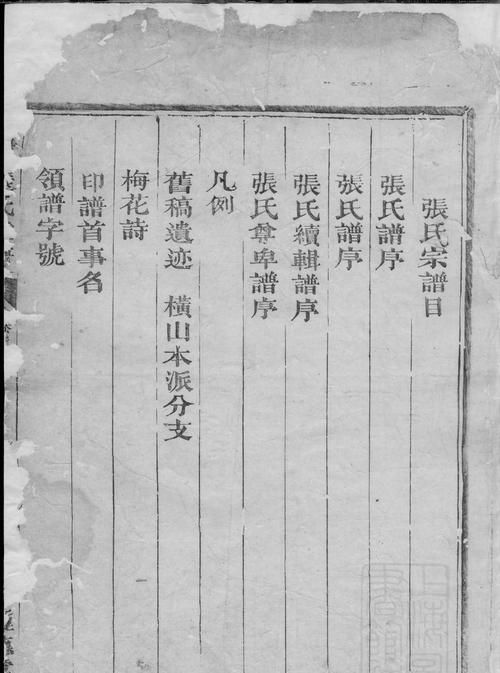 張氏宗譜目
張氏譜序
張氏譜序
張氏續輯譜序
張氏尊卑譜序
凡例
舊稿遺迹 橫山本派分支
梅花詩
印譜首事名
領譜字號